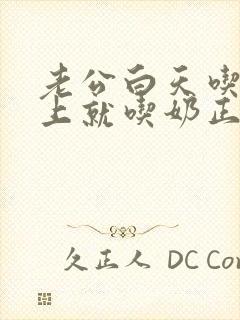 老公白天喫
上就喫奶正
久正人 DC Con